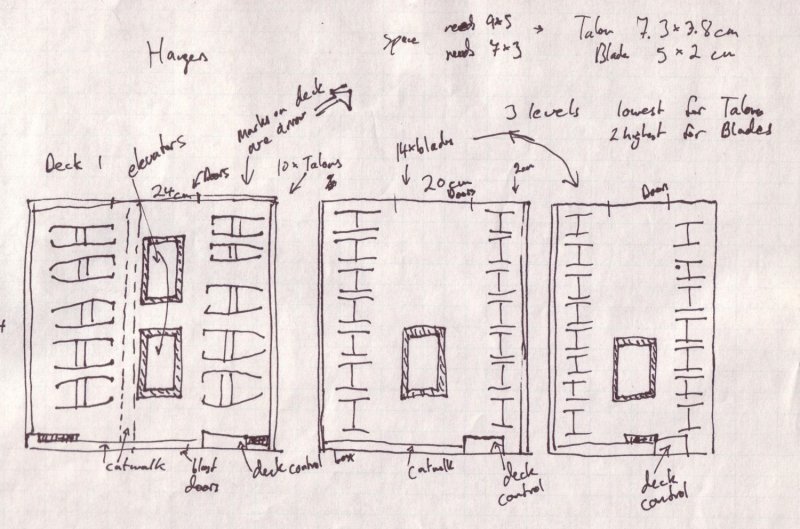 Hangers
Space needs 9x5 → Talon 7.3x3.8cm
needs 7x3 Blade 5x2 cm
3 levels lowest for Talons
2 highest for Blades
Marks on deck
are arrow
Deck 1
elevators
24cm
Doors
10x Talons
14xblades
20cm
Doors
2cm
Doors
catwalk
blast
doors
deck control
box
catwalk
deck
control
deck
control